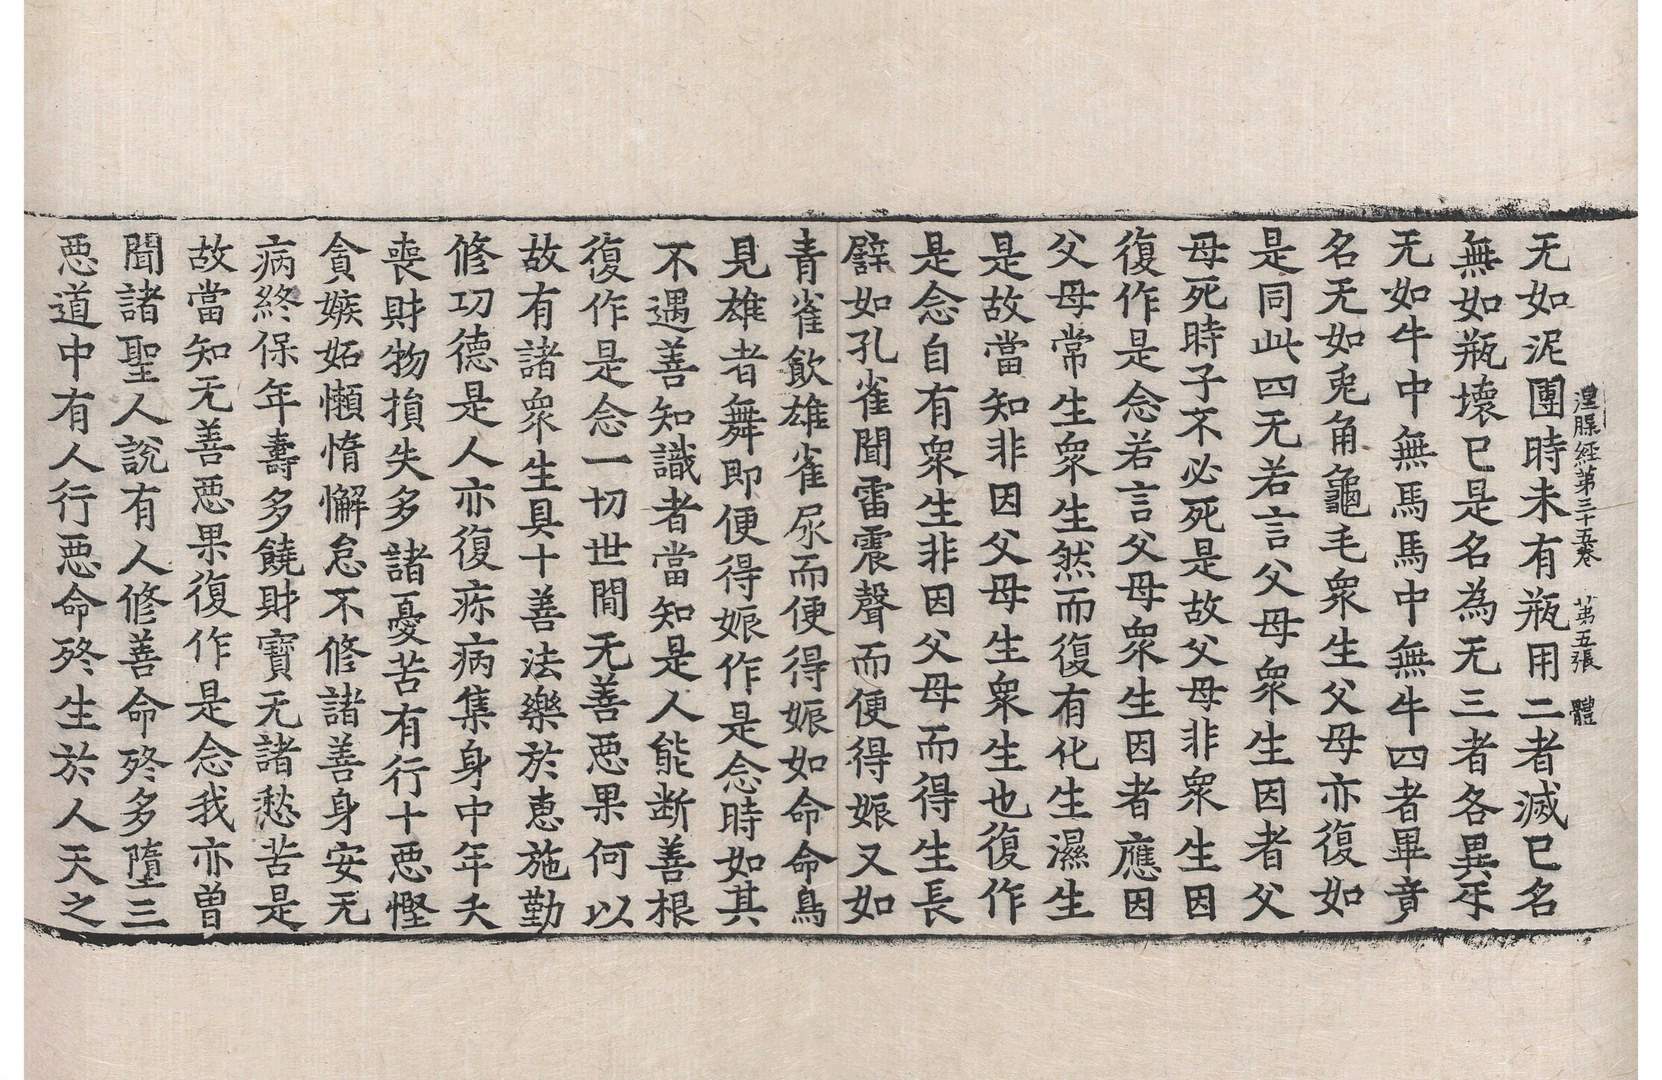 湼槃經第三十五卷　第五張　體
无如泥團時未有瓶用二者滅已名
無如瓶壞已是名為无三者各異㸦
无如牛中無馬馬中無牛四者畢竟
名无如兎角龜毛衆生父母亦復如
是同此四无若言父母衆生因者父
母死時子不必死是故父母非衆生因
復作是念若言父母衆生因者應因
父母常生衆生然而復有化生濕生
是故當知非因父母生衆生也復作
是念自有衆生非因父母而得生長
譬如孔雀聞雷震聲而便得娠又如
青雀飲雄雀尿而便得娠如命命鳥
見雄者舞即便得娠作是念時如其
不遇善知識者當知是人能断善根
復作是念一切世間无善惡果何以
故有諸衆生具十善法樂於惠施勤
修㓛德是人亦復疹病集身中年夭
喪財物損失多諸憂苦有行十惡慳
貪嫉妬懶惰懈怠不修諸善身安无
病終保年壽多饒財寶无諸愁苦是
故當知无善惡果復作是念我亦曽
聞諸聖人說有人修善命終多墮三
惡道中有人行惡命終生於人天之